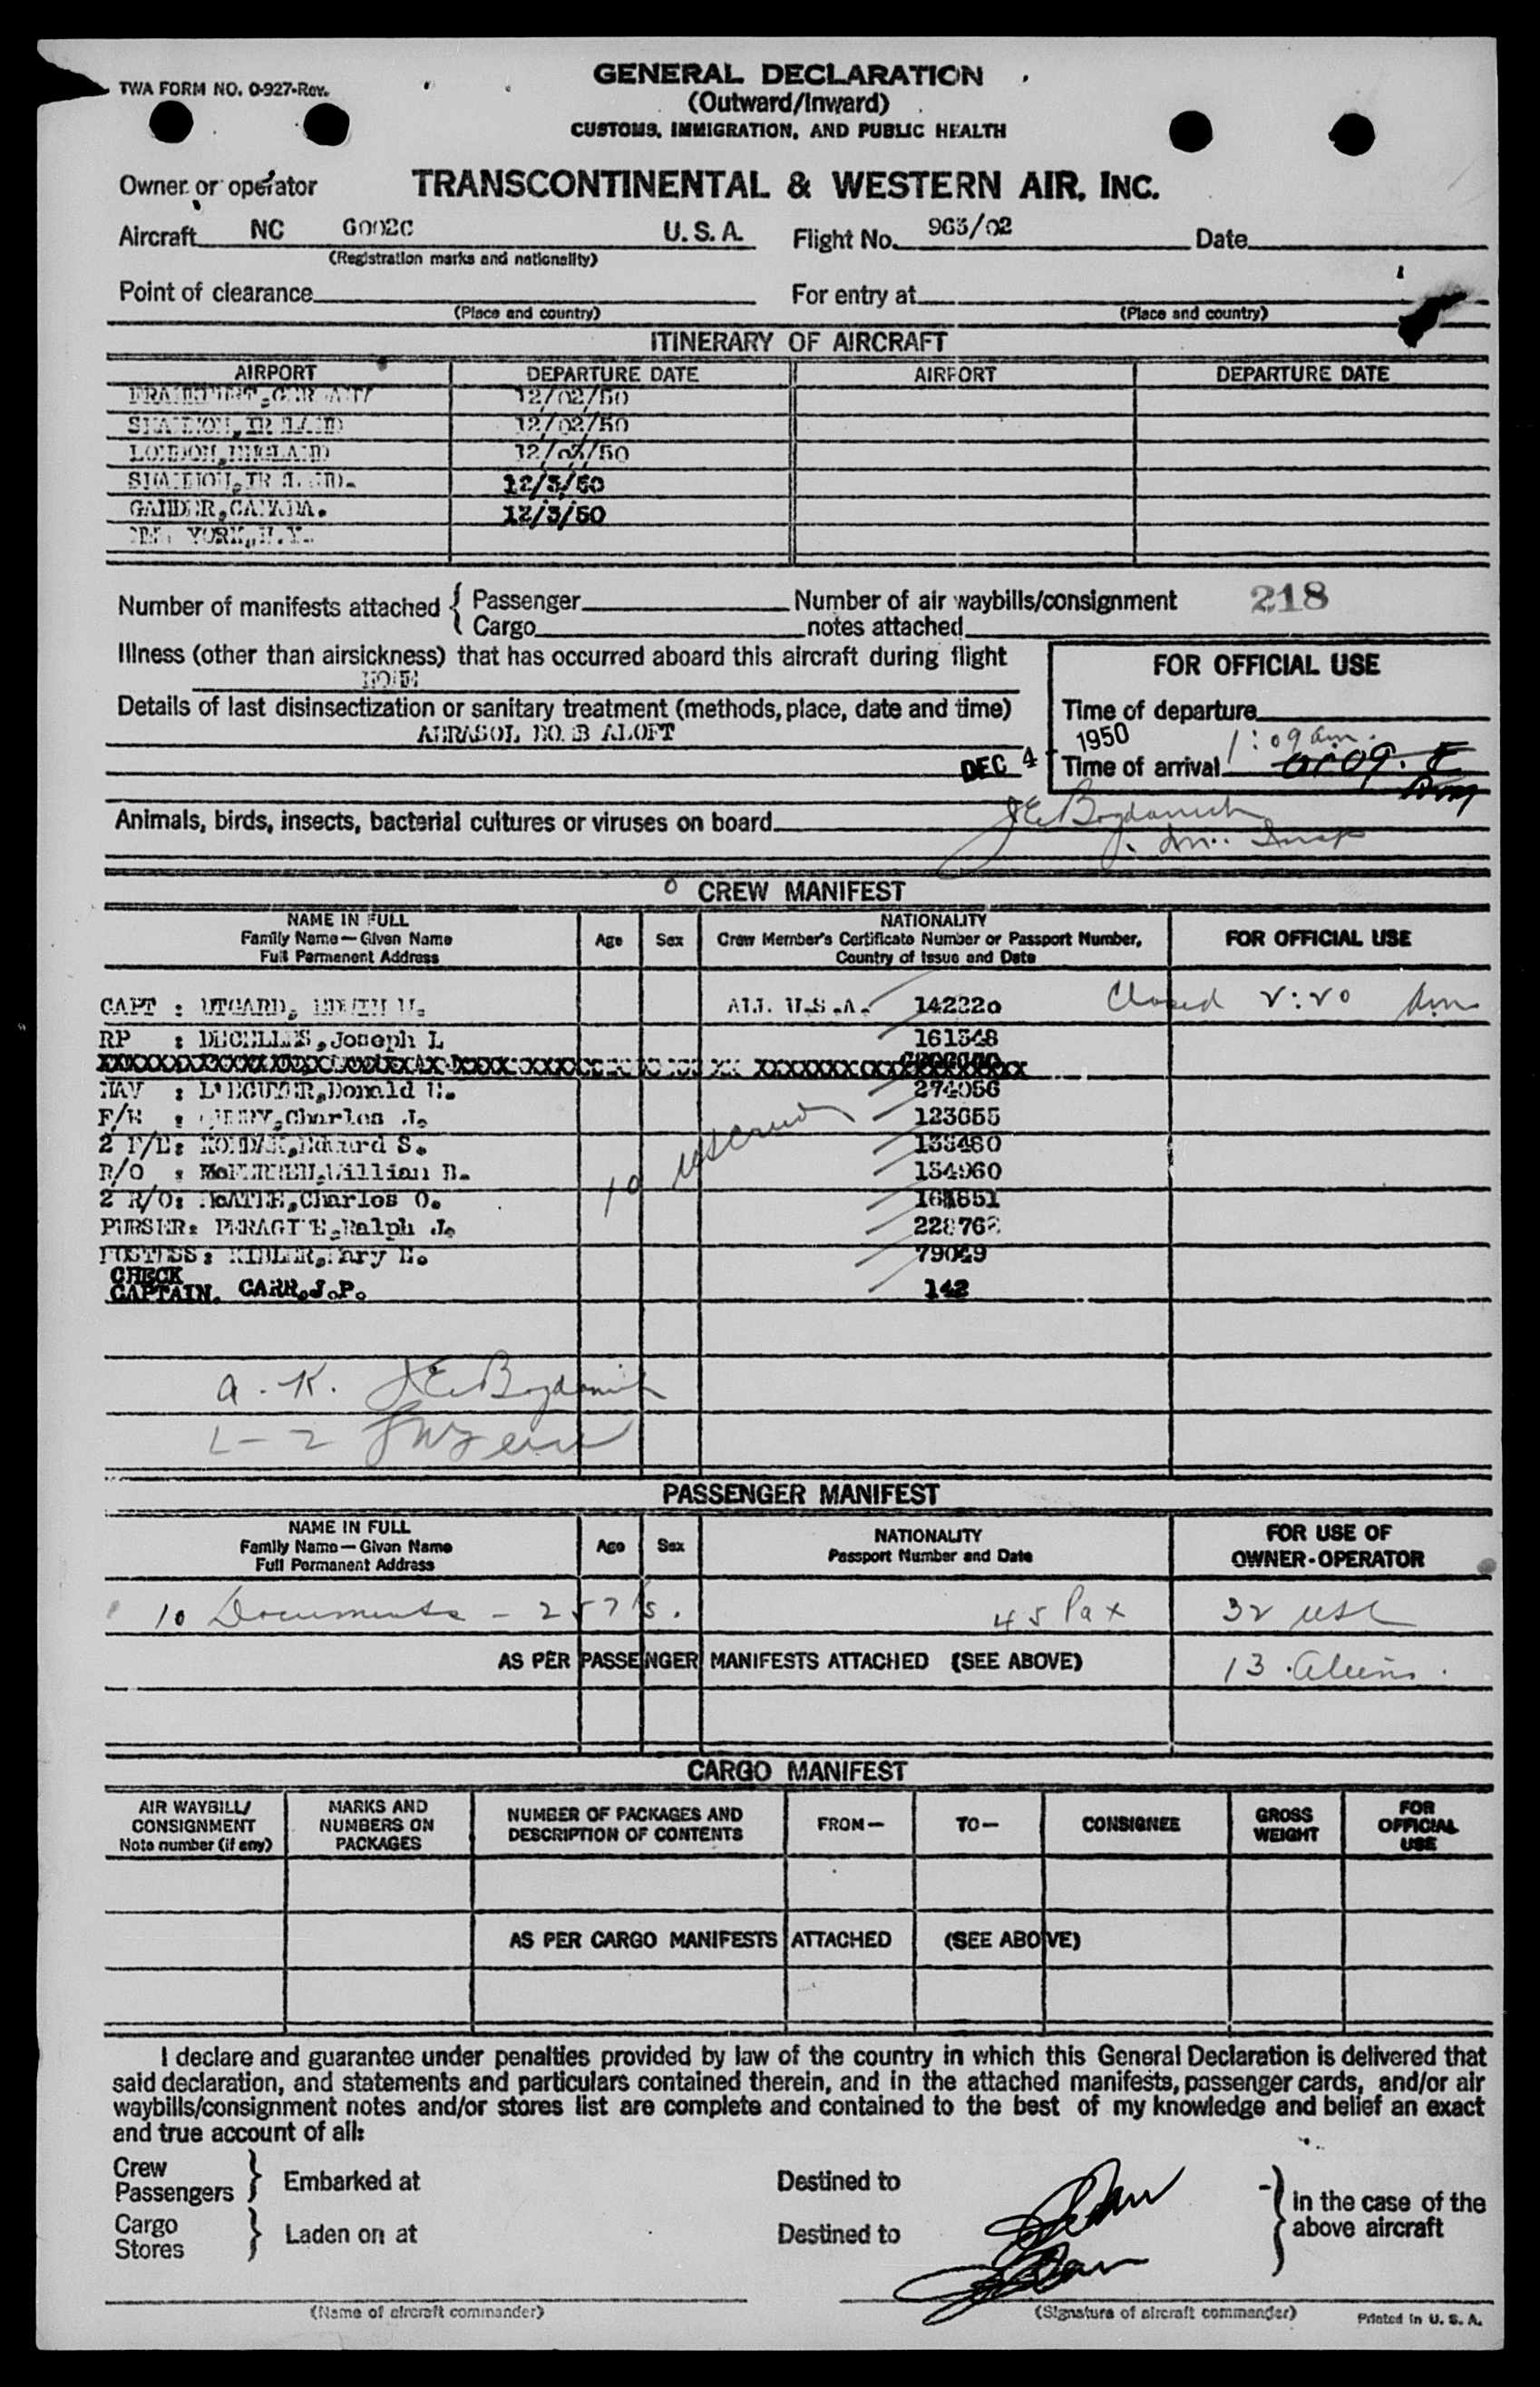 TWA FORM NO. O-927-Rev.
GENERAL DECLARATION
(Outward/Inward)
CUSTOMS, IMMIGRATION, AND PUBLIC HEALTH
Owner or operator TRANSCONTINENTAL & WESTERN AIR, INC.
Aircraft NC 6002C U.S.A. Flight No. 963/02 Date
(Registration marks and nationality)
Point of clearance For entry at
(Place and country) (Place and country)
ITINERARY OF AIRCRAFT
AIRPORT DEPARTURE DATE AIRPORT DEPARTURE DATE
FRANKFURT, GERMANY 12/02/50
SHANNON, IRELAND 12/02/50
LONDON, ENGLAND 12/03/50
SHANNON, IRELAND. 12/3/50
GANDER, CANADA. 12/3/50
NEW YORK, N.Y.
Number of manifests attached { Passenger Number of air waybills/consignment 218
Cargo notes attached
Illness (other than airsickness) that has occurred aboard this aircraft during flight
NONE
FOR OFFICIAL USE
Details of last disinsectization or sanitary treatment (methods, place, date and time)
Time of departure
AERASOL NO. B ALOFT
DEC 4 1950
Time of arrival 1:09 am.
Animals, birds, insects, bacterial cultures or viruses on board
J E Bogdanich
Im. Insp
CREW MANIFEST
NAME IN FULL
Family Name—Given Name
Full Permanent Address
Age Sex
NATIONALITY
Crew Member's Certificate Number or Passport Number,
Country of Issue and Date
FOR OFFICIAL USE
CAPT : UTGARD, ALL U.S.A. 142220 Closed
RP : DECELLES, Joseph L 161348
NAV : Donald 274056
F/E : Charles J. 123655
2 F/E: Edward S. 133480
R/O : William B. 154960
2 R/O: Charles O. 161851
PURSER: Ralph J. 228762
HOSTESS: KIBLER, Mary E. 79049
CHECK
CAPTAIN. CARR, J.P. 142
10
J E Bogdanich
L-2
PASSENGER MANIFEST
NAME IN FULL
Family Name—Given Name
Full Permanent Address
Age Sex
NATIONALITY
Passport Number and Date
FOR USE OF
OWNER-OPERATOR
10 Documents - 257's. 45 Pax 32 USC
AS PER PASSENGER MANIFESTS ATTACHED (SEE ABOVE) 13 Aliens.
CARGO MANIFEST
AIR WAYBILL/
CONSIGNMENT
Note number (if any)
MARKS AND
NUMBERS ON
PACKAGES
NUMBER OF PACKAGES AND
DESCRIPTION OF CONTENTS
FROM—
TO—
CONSIGNEE
GROSS
WEIGHT
FOR
OFFICIAL
USE
AS PER CARGO MANIFESTS ATTACHED (SEE ABOVE)
I declare and guarantee under penalties provided by law of the country in which this General Declaration is delivered that
said declaration, and statements and particulars contained therein, and in the attached manifests, passenger cards, and/or air
waybills/consignment notes and/or stores list are complete and contained to the best of my knowledge and belief an exact
and true account of all:
Crew
Passengers } Embarked at Destined to
Cargo
Stores } Laden on at Destined to
} in the case of the
above aircraft
(Name of aircraft commander) (Signature of aircraft commander) Printed in U. S. A.